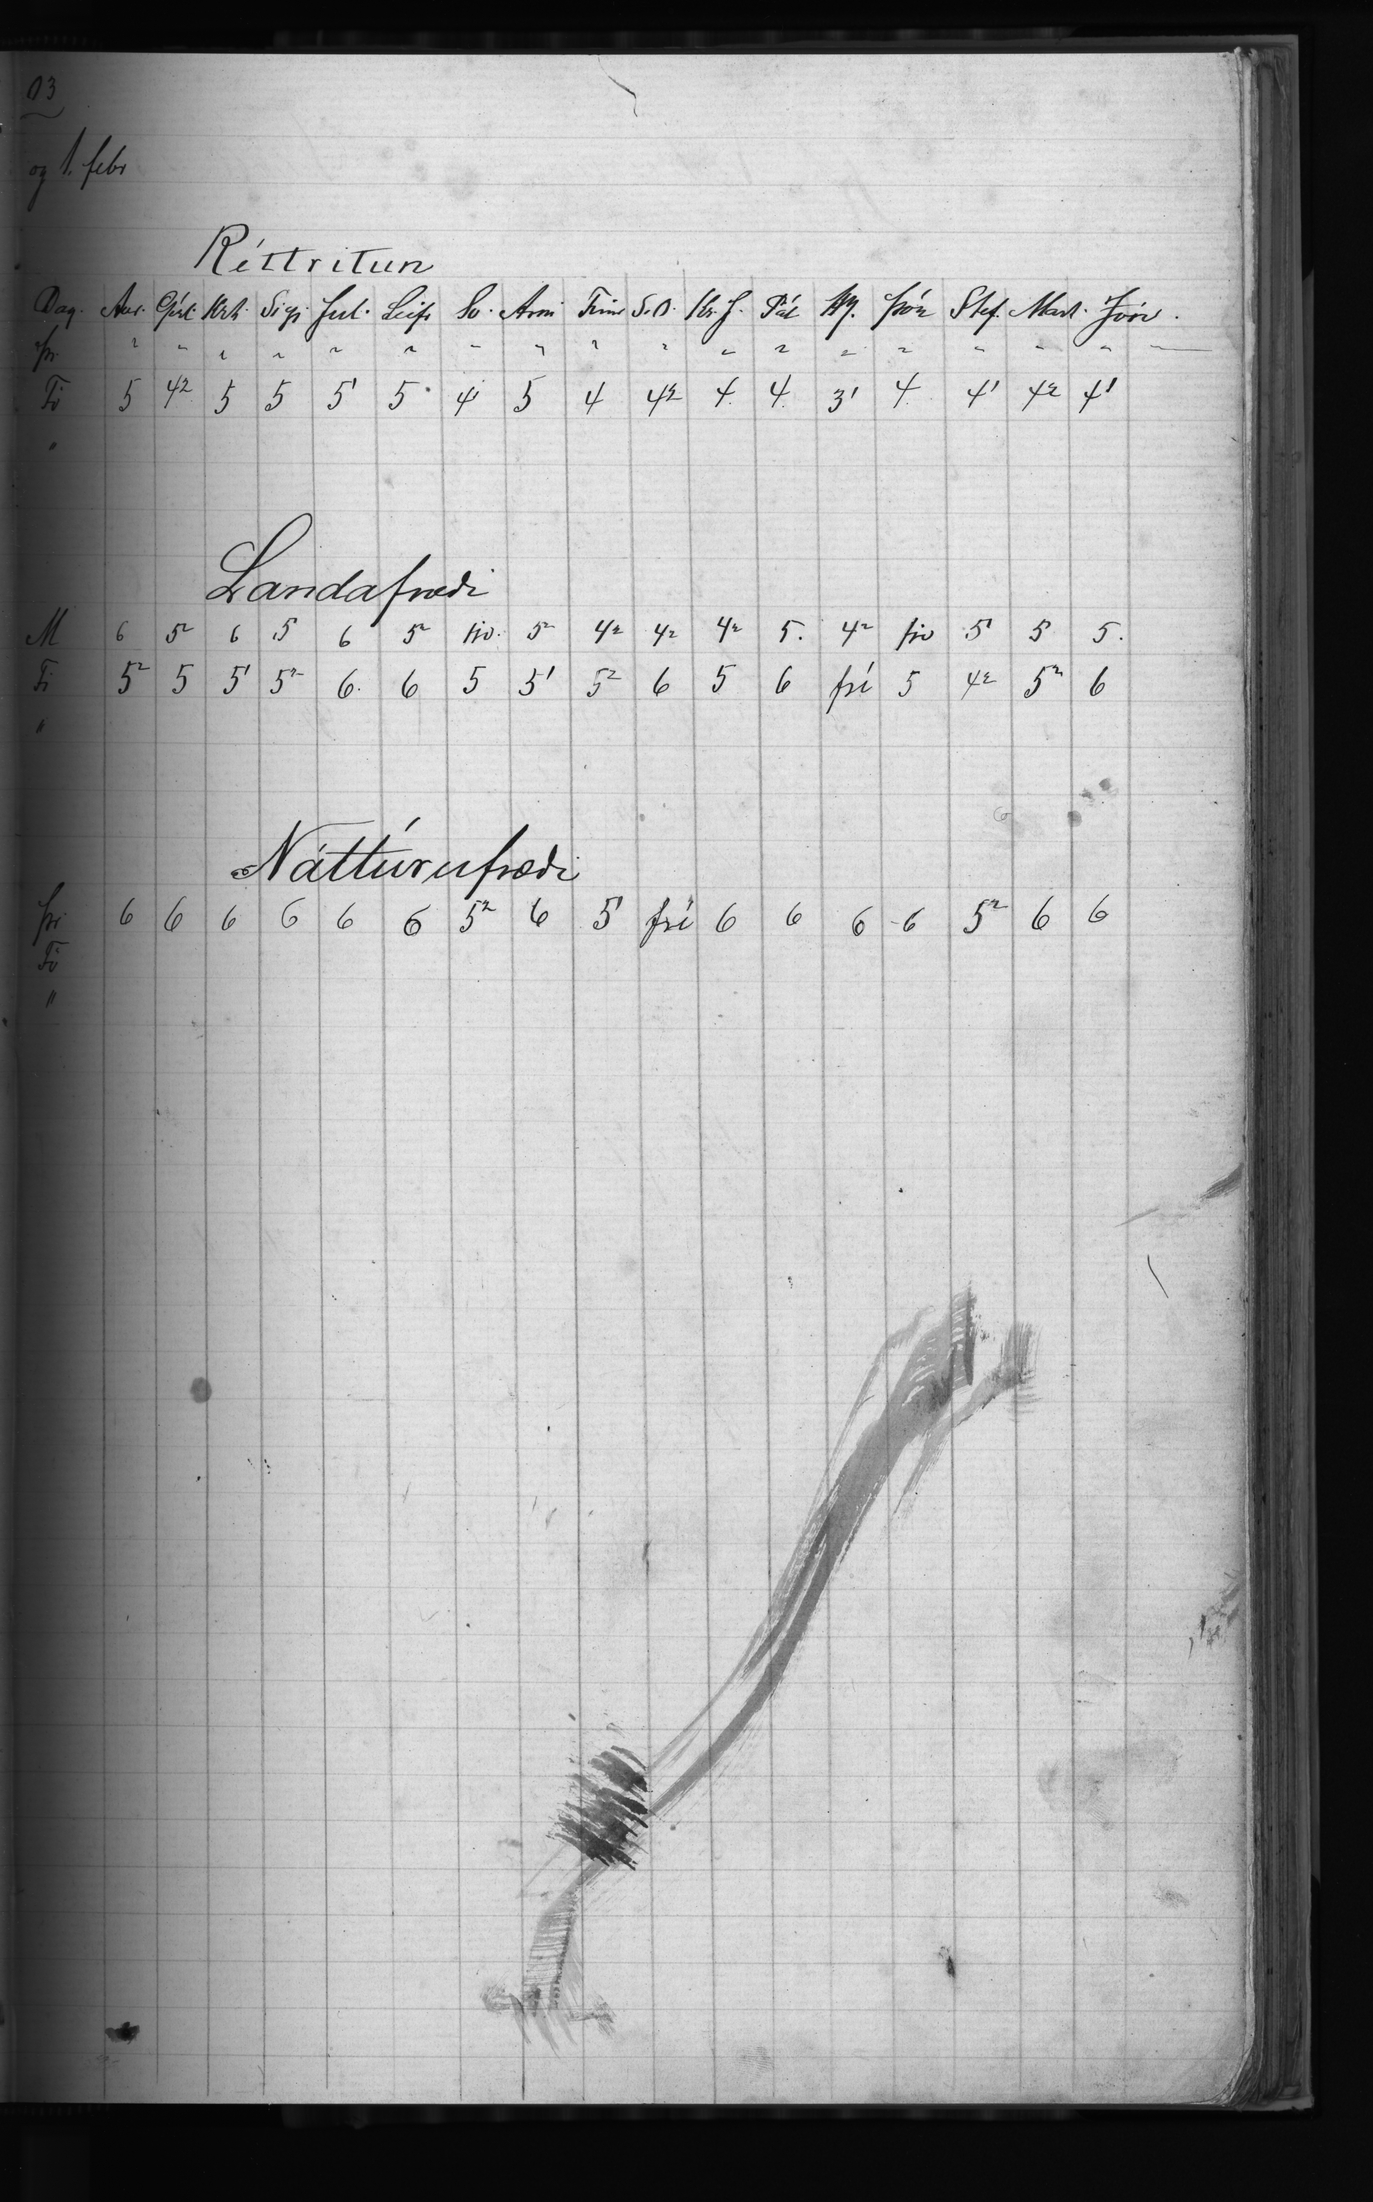 03
og 1. febr
Réttritun
Dag. Júl. Leifr Sv. Árni Finnr S.B. Kr. J. Pál Þór Stef. Mart. Jón.
Þri " " " " " " " " " " " " " " " " "
Fö 5 4² 5 5 5¹ 5 4¹ 5 4 4² 4 4 3¹ 4 4¹ 4² 4¹
"
Landafræði
M 6 5² 6 5 6 5² 5² 4² 4² 4² 5. 4² 5¹ 5 5.
Fi 5² 5 5¹ 5² 6. 6 5 5¹ 5² 6 5 6 frí 5 4² 5² 6
"
Náttúrufræði
Þri 6 6 6 6 6 6 5² 6 5¹ frí 6 6 6 6 5² 6 6
Fö
"